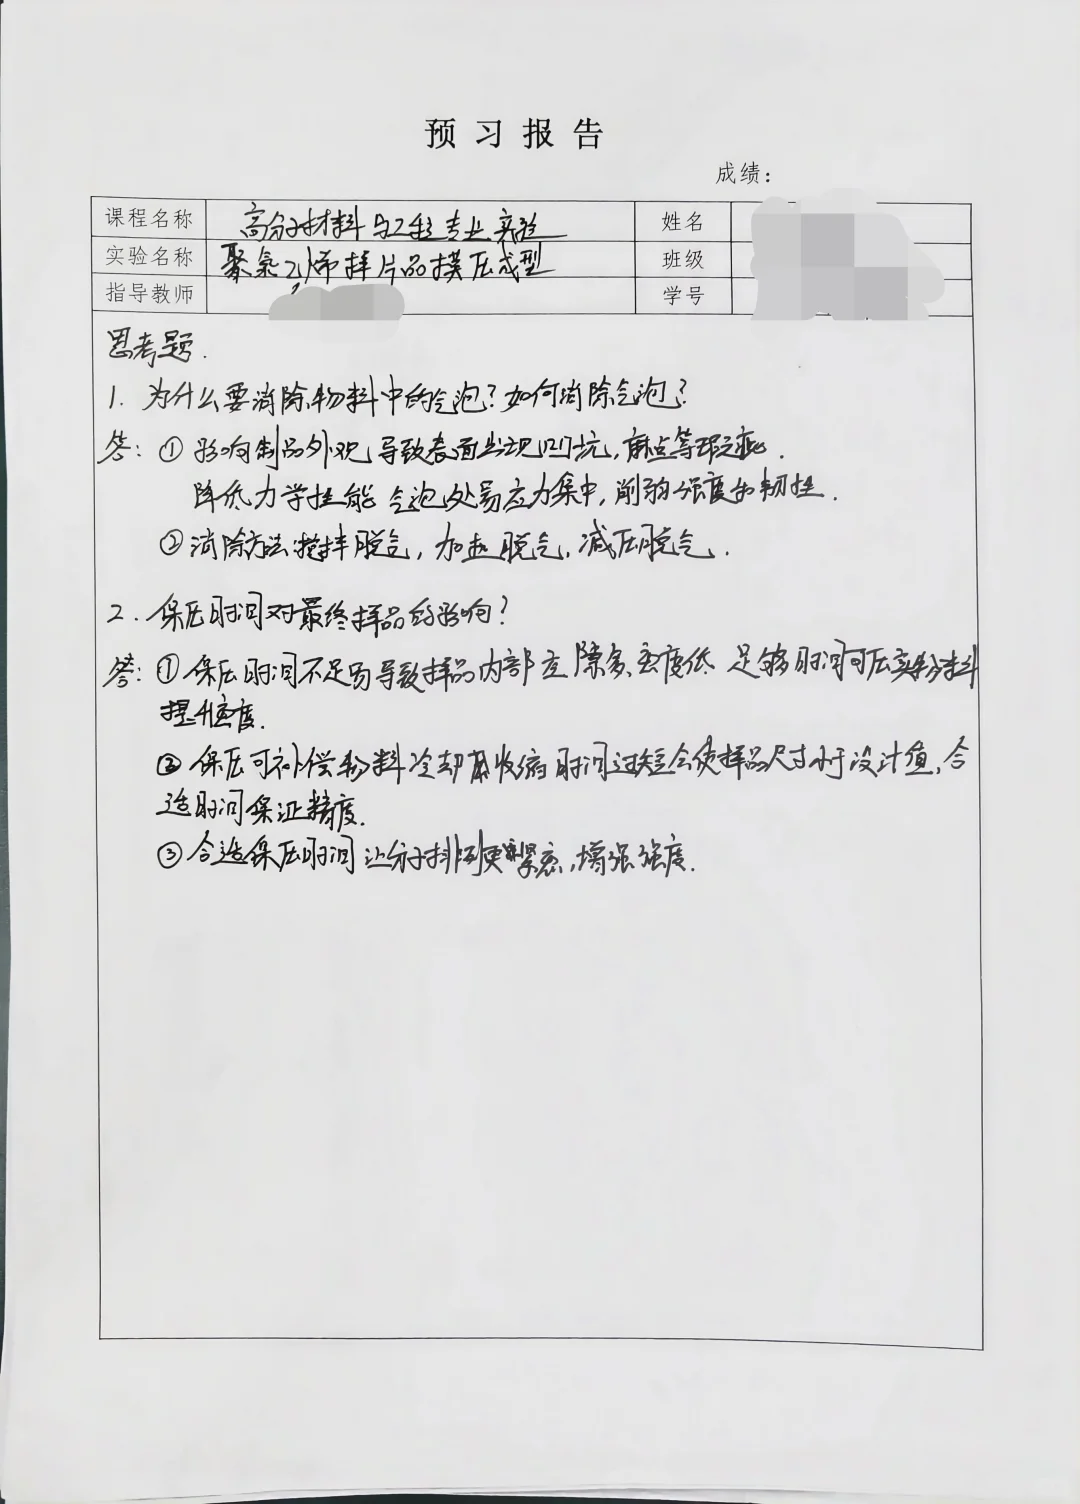 预习报告
成绩:
课程名称 高分子材料与工程专业实验 姓名
实验名称 聚氯乙烯样片品模压成型 班级
指导教师 学号
思考题.
1. 为什么要消除物料中的气泡?如何消除气泡?
答: ① 影响制品外观,导致表面出现凹坑,麻点等瑕疵.
降低力学性能 气泡处易应力集中,削弱强度和韧性.
② 消除方法:搅拌脱气,加热脱气,减压脱气.
2. 保压时间对最终样品的影响?
答: ① 保压时间不足易导致样品内部空隙多、密度低 足够时间可压实物料
提升密度.
② 保压可补偿物料冷却 收缩 时间过短会使样品尺寸小于设计值,合
适时间保证精度.
③ 合适保压时间 让分子排列更 紧密,增强强度.